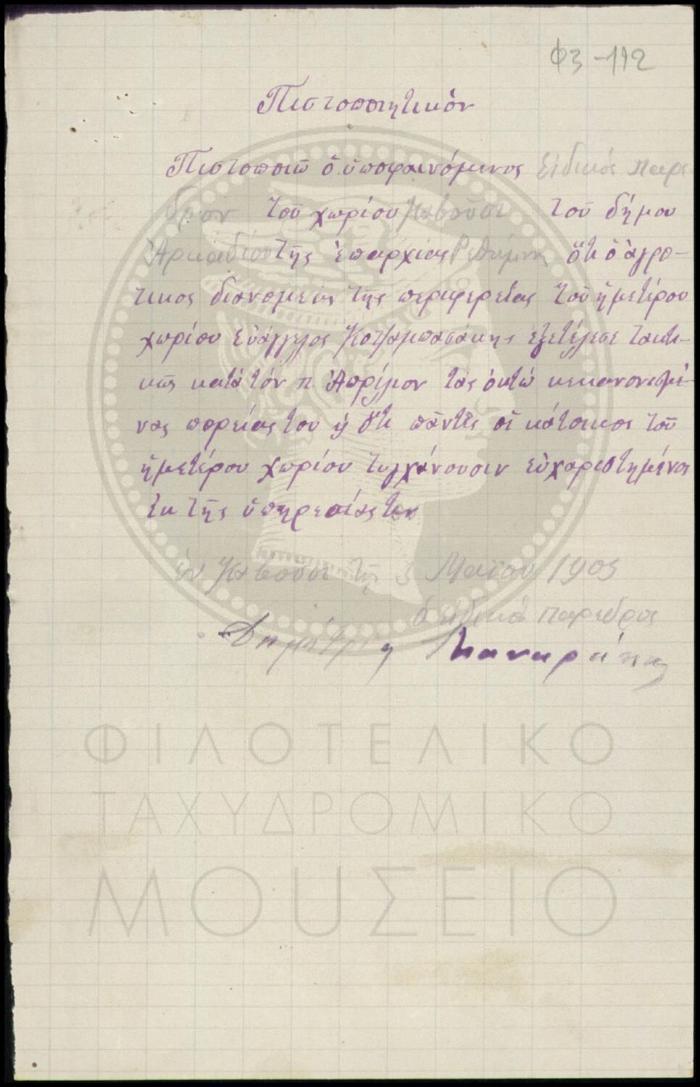 ΦЗ-112
Πιστοποιητικὸν
Πιστοποιῶ ὁ ὑποφαινόμενος Εἰδικὸς παρε
δρος τοῦ χωρίου Καβοῦσι τοῦ δήμου
Ἀρκαδίου τῆς ἐπαρχίας Ρεθύμνης ὅτι ὁ ἀγρο-
τικος διανομεὺς τῆς περιφερείας τοῦ ἡμετέρου
χωρίου Εὐάγγελος Κοτζαμπασάκης ἐξετέλεσε τακτι-
κῶς κατὰ τὸν π. Ἀπρίλιον τὰς ὀκτὼ κεκανονισμέ-
νας πορείας του ὅτι πάντες οἱ κάτοικοι τοῦ
ἡμετέρου χωρίου τυγχάνουσιν εὐχαριστημένοι
ἐκ τῆς ὑπηρεσίας του
ἐν Καβοῦσι τῇ 3 Μαΐου 1905
ὁ εἰδικὸς παρεδρος
Δημήτριος
ΦΙΛΟΤΕΛΙΚΟ
ΤΑΧΥΔΡΟΜΙΚΟ
ΜΟΥΣΕΙΟ